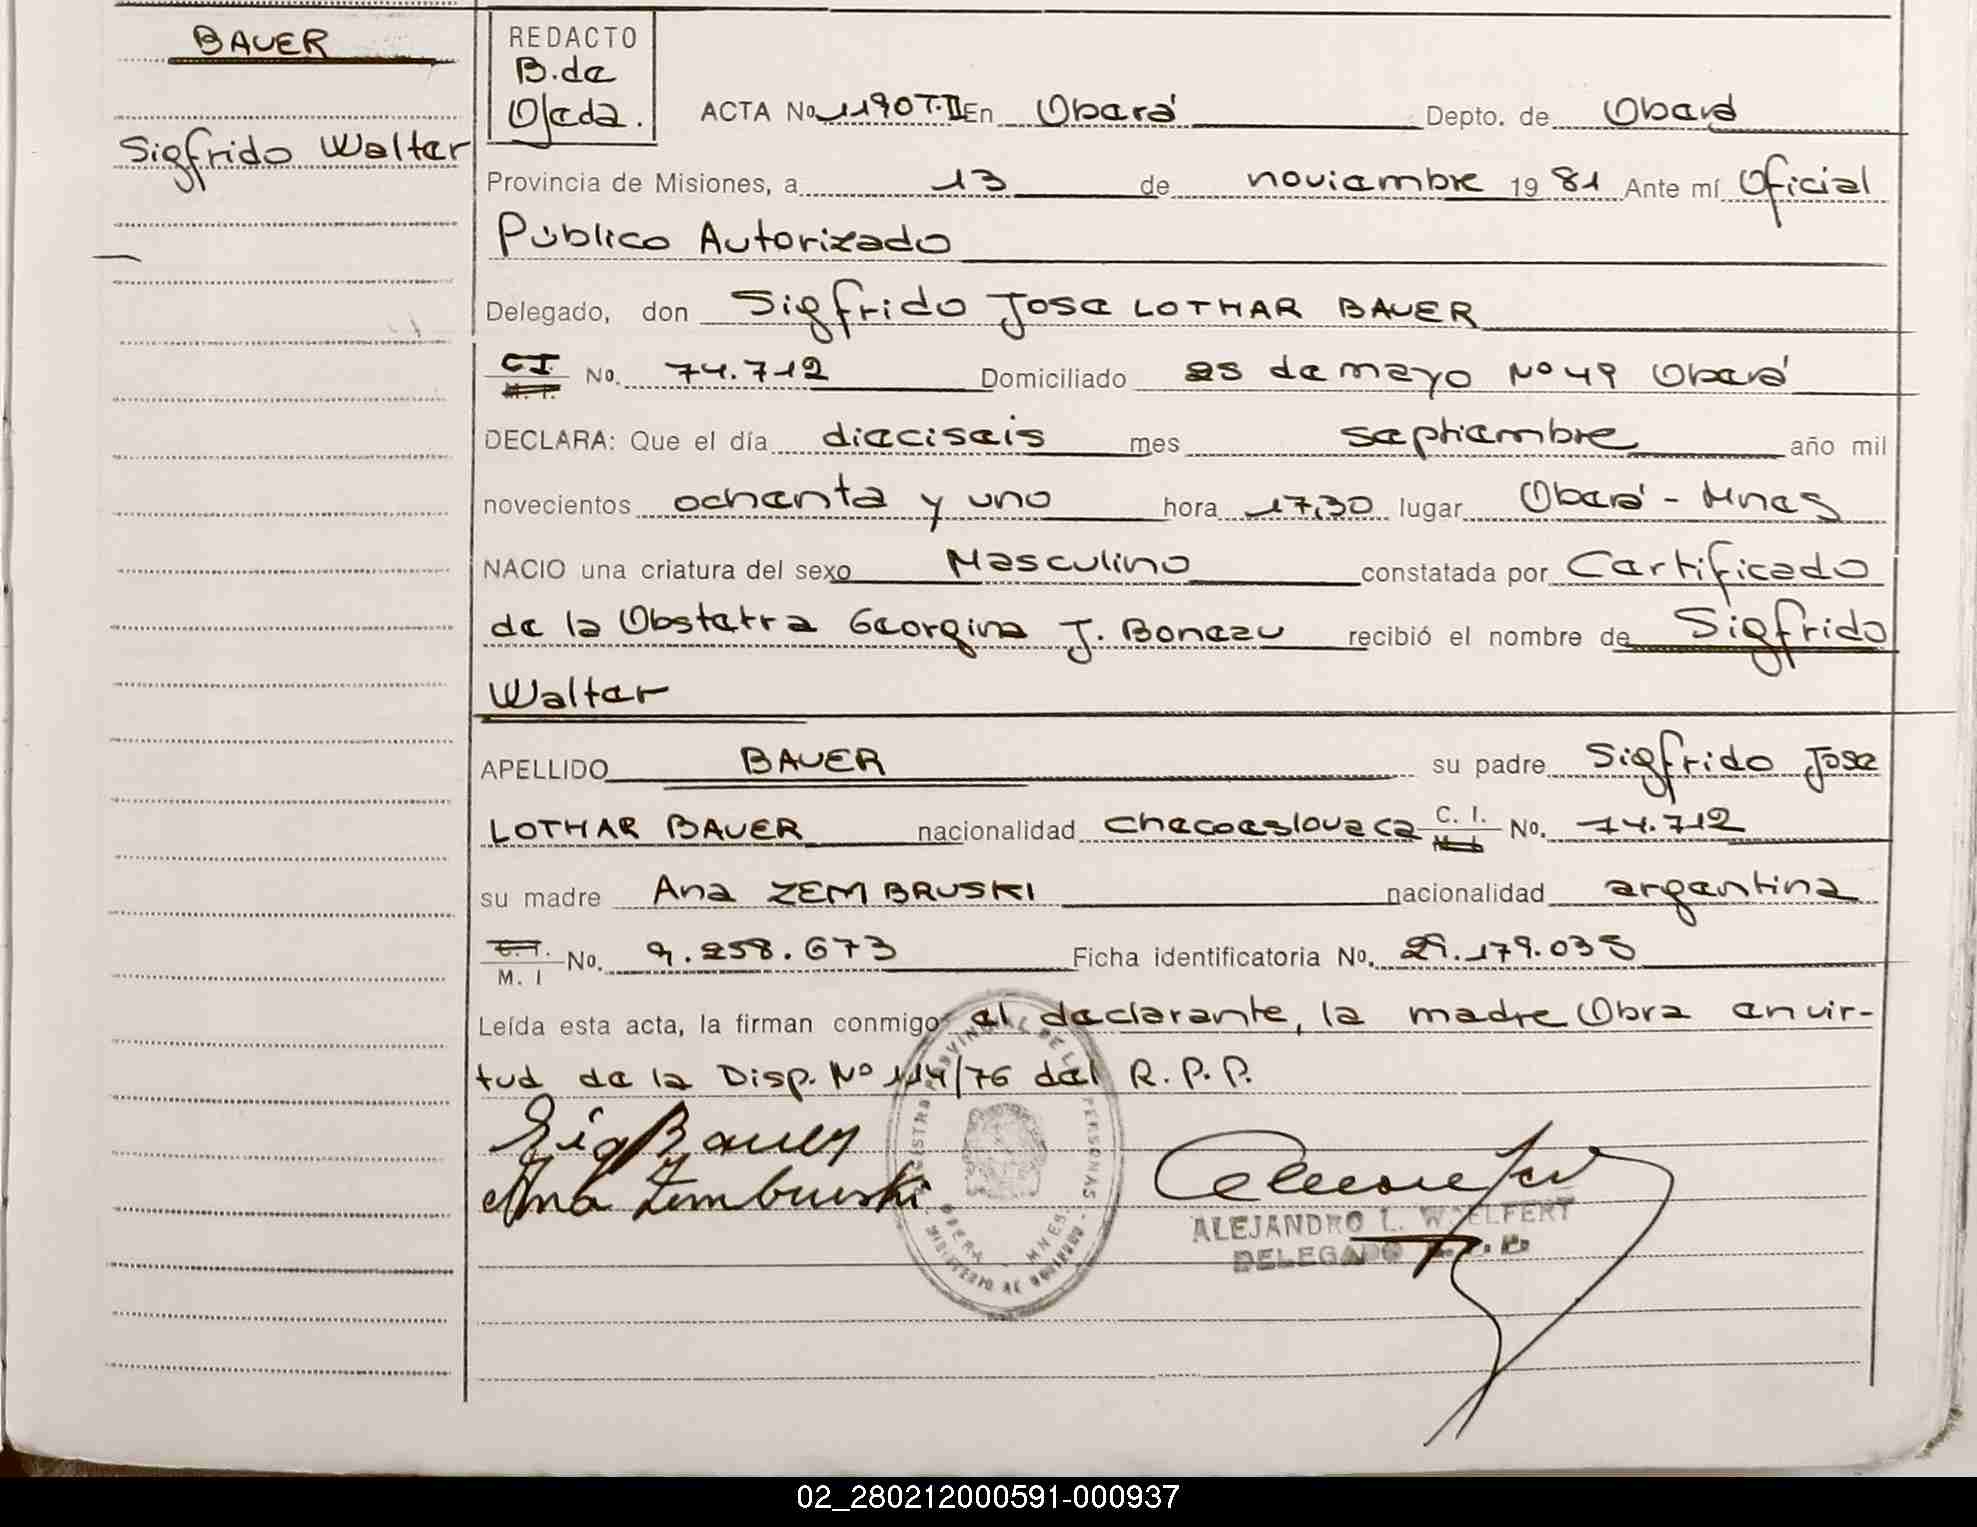 BAUER
Sigfrido Walter
REDACTO
B. de
Ojeda.
ACTA No 1190 T. II En Oberá Depto. de Oberá
Provincia de Misiones, a 13 de noviembre 1981 Ante mí Oficial
Público Autorizado
Delegado, don Sigfrido Jose LOTHAR BAUER
C.I. M. I. No. 74.712 Domiciliado 25 de mayo Nº 49 Oberá
DECLARA: Que el día dieciseis mes septiembre año mil
novecientos ochenta y uno hora 17,30 lugar Oberá - Mnes
NACIO una criatura del sexo Masculino constatada por Certificado
de la Obstetra Georgina J. Bonezu recibió el nombre de Sigfrido
Walter
APELLIDO BAUER su padre Sigfrido Jose
LOTHAR BAUER nacionalidad checoeslovaca C. I. No. 74.712
su madre Ana ZEMBRUSKI nacionalidad argentina
C. I. M. I No. 9.258.673 Ficha identificatoria No. 29.179.035
Leída esta acta, la firman conmigo el declarante, la madre Obra en vir-
tud de la Disp. Nº 114/76 del R. P. P.
Sig Bauer
Ana Zembruski
PERSONAS
OBERA - MNES.
ALEJANDRO L. WOELFERT
DELEGADO R. P. P.
02_280212000591-000937